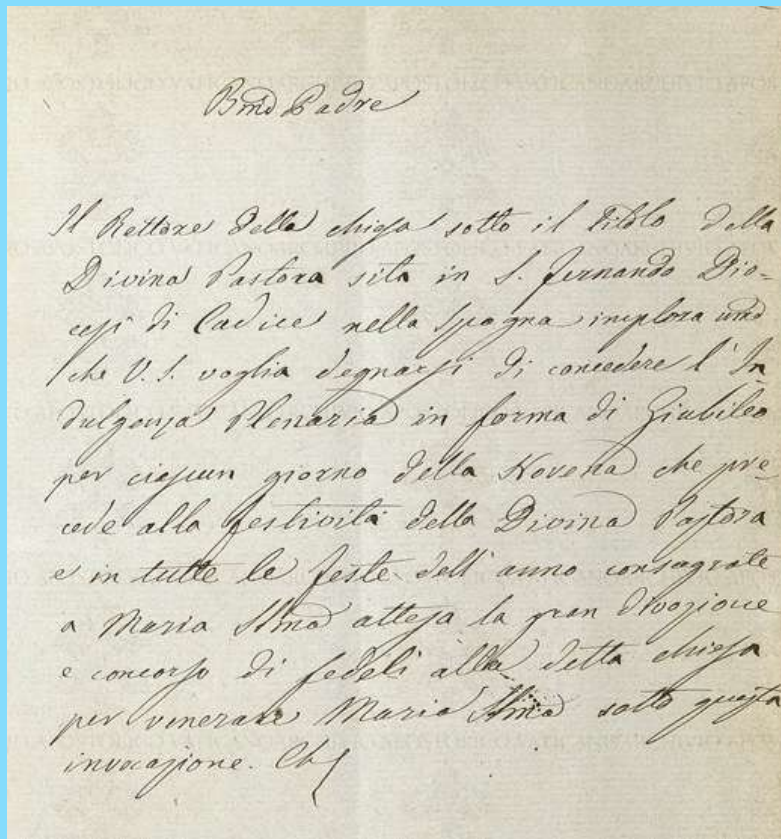 Bmo Padre
Il Rettore della chiesa sotto il titolo della
Divina Pastora sita in S. Fernando Dio-
cesi di Cadice nella Spagna implora umo
che V. S. voglia degnarsi di concedere l'In
dulgenza Plenaria in forma di Giubileo
per ciascun giorno della Novena che pre-
cede alla festività della Divina Pastora
e in tutte le feste dell'anno consagrate
a Maria SSma attesa la gran divozione
e concorso di fedeli alla detta chiesa
per venerare Maria SSma sotto questa
invocazione. Che